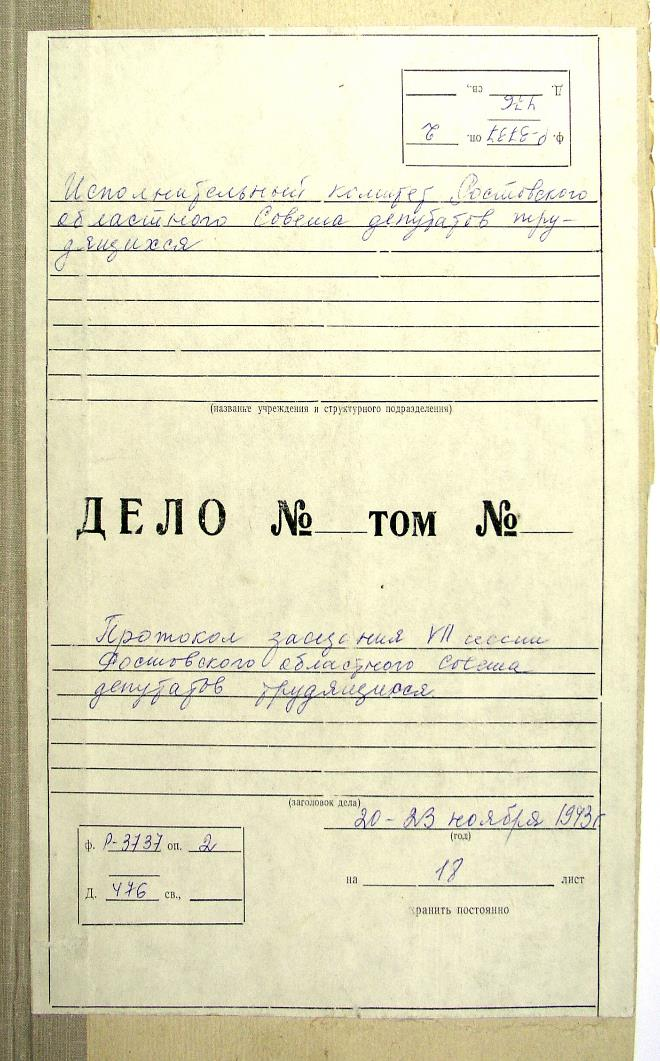 Д. 476 св.,
ф. Р-3737 оп. 2
Исполнительный комитет Ростовского
областного Совета депутатов тру-
дящихся
(названье учреждения и структурного подразделения)
ДЕЛО № том №
Протокол заседания VII сессии
Ростовского областного Совета
депутатов трудящихся
(заголовок дела)
20-23 ноября 1943г
(год)
ф. Р-3737 оп. 2
Д. 476 св.,
на 18 лист
хранить постоянно